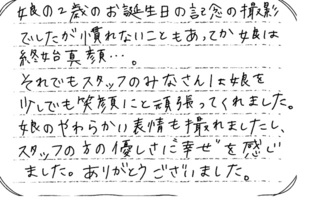 娘の2歳のお誕生日の記念の撮影
でしたが慣れないこともあってか娘は
終始真顔…。
それでもスタッフのみなさんは娘を
少しでも笑顔にと頑張ってくれました。
娘のやわらかい表情も撮れましたし、
スタッフの方の優しさに"幸せ"を感じ
ました。ありがとうございました。